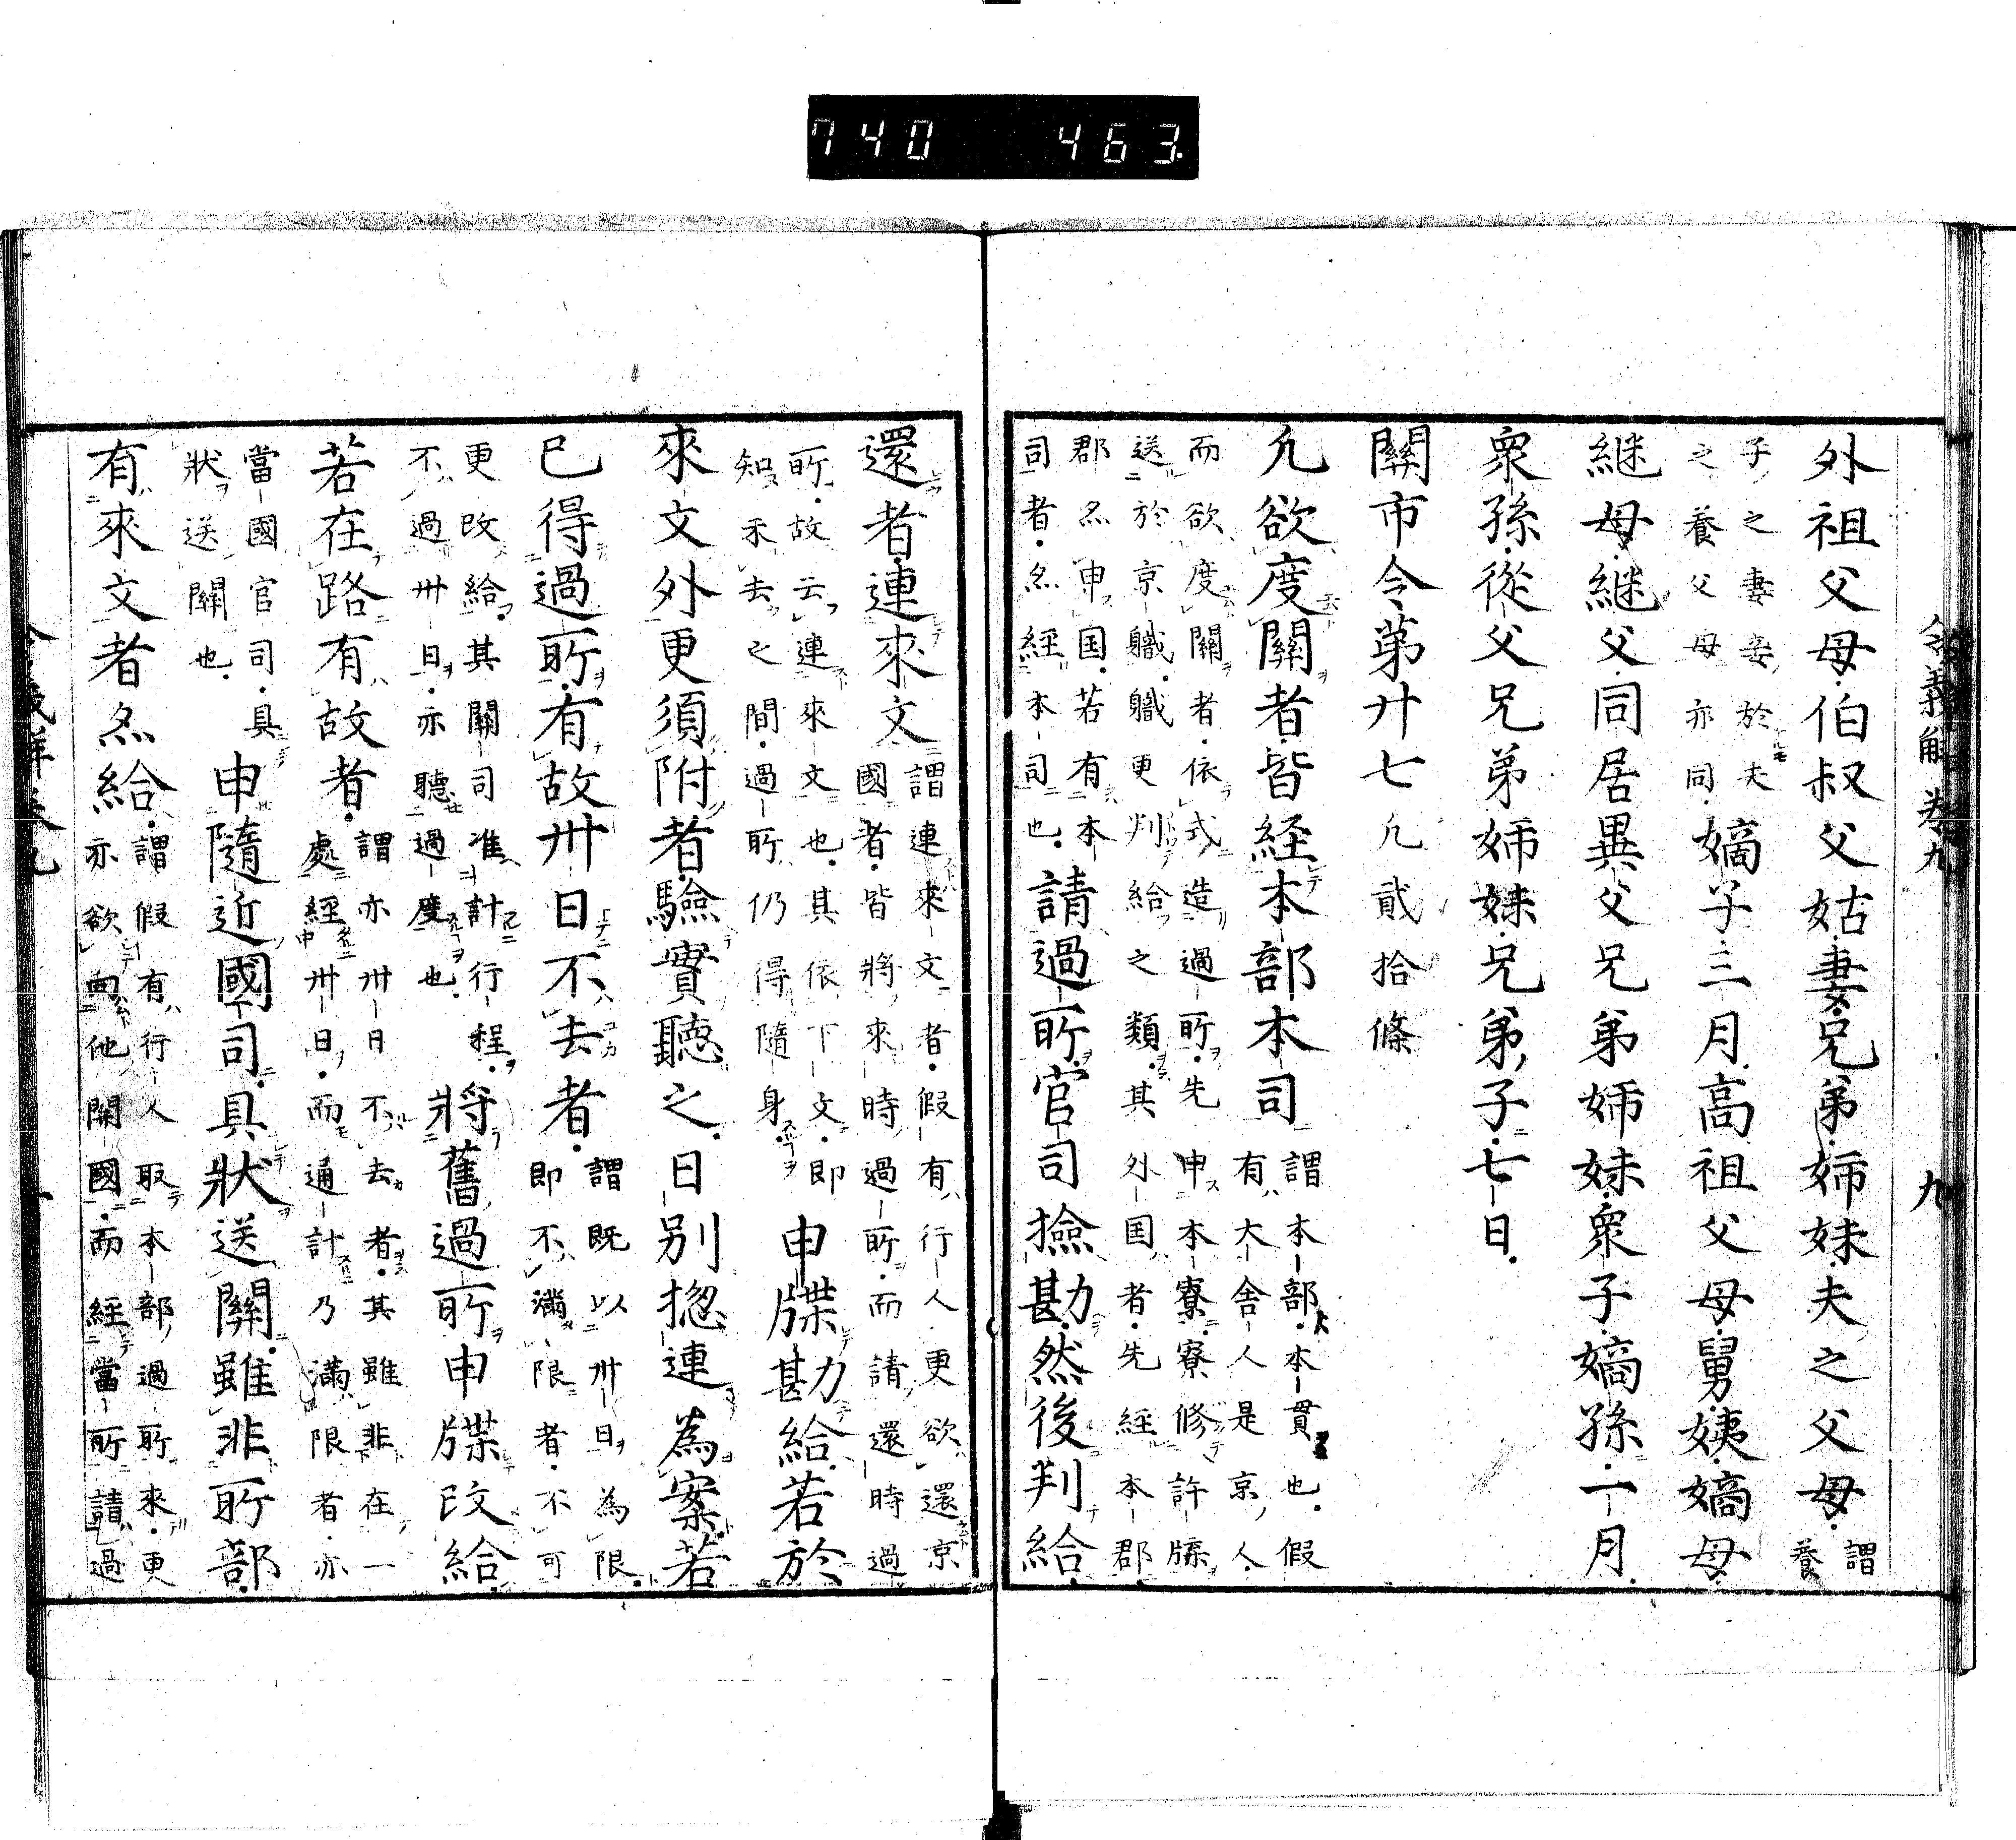 740 463.
令義解 卷九 九
外祖父母伯叔父姑妻兄弟姉妹夫之父母謂養
子之妻妾於夫之養父母亦同嫡子三月高祖父母舅姨嫡母
継母継父同居異父兄弟姉妹衆子嫡孫一月
衆孫從父兄弟姉妹兄弟子七日
關市令第廿七凢貳拾條
凢欲度關者皆経本部本司謂本部本貫也假有大舍人是京人
而欲度關者依式造過所先申本寮寮修許牒送於京職職更判給之類其外国者先経本郡
郡亦申国若有本司者亦経本司也請過所官司撿勘然後判給
還者連來文謂連來文者假有行人更欲還京國者皆將來時過所而請還時過
所故云連來文也其依下文即知未去之間過所仍得隨身申牒勘給若於
來文外更須附者驗實聽之日別揔連為案若
已得過所有故卅日不去者謂既以卅日為限即不滿限者不可
更改給其關司准計行程不過卅日亦聽過度也將舊過所申牒改給
若在路有故者謂亦卅日不去者其雖非在一處経卅日而通計乃滿限者亦
當國官司具狀送關也申隨近國司具狀送關雖非所部
有來文者亦給謂假有行人取本部過所來更亦欲向他關國而経當所請過